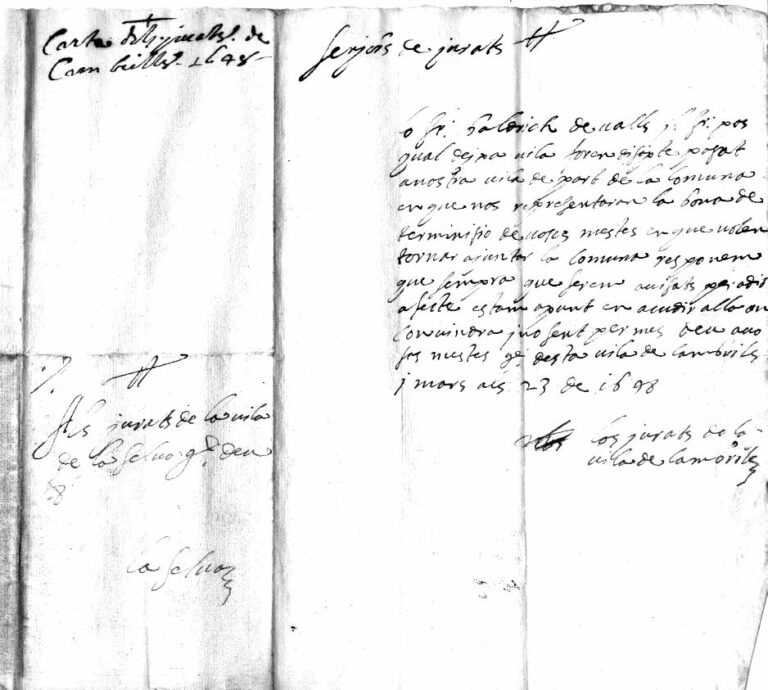 Carta dels jurats de
Cambrills 1648
Senjors de jurats
lo Sr. Baldrich de valls
qual vila foren disapte posat
a nostra vila de part de la Comuna
en que nos representaran la bona de
terminisio de voses mestes en que volen
tornar ajuntar la Comuna responem
que sempra que serem avisats per a dit
afecte estam apunt en acudir alla on
Convindra j no sent per mes deu a vo
ses mestes gē desta vila de Cambrils
j mars als 23 de 1648
los jurats de la
vila de Cambrils
Als jurats de la vila
de la Selva gē deu
la Selva